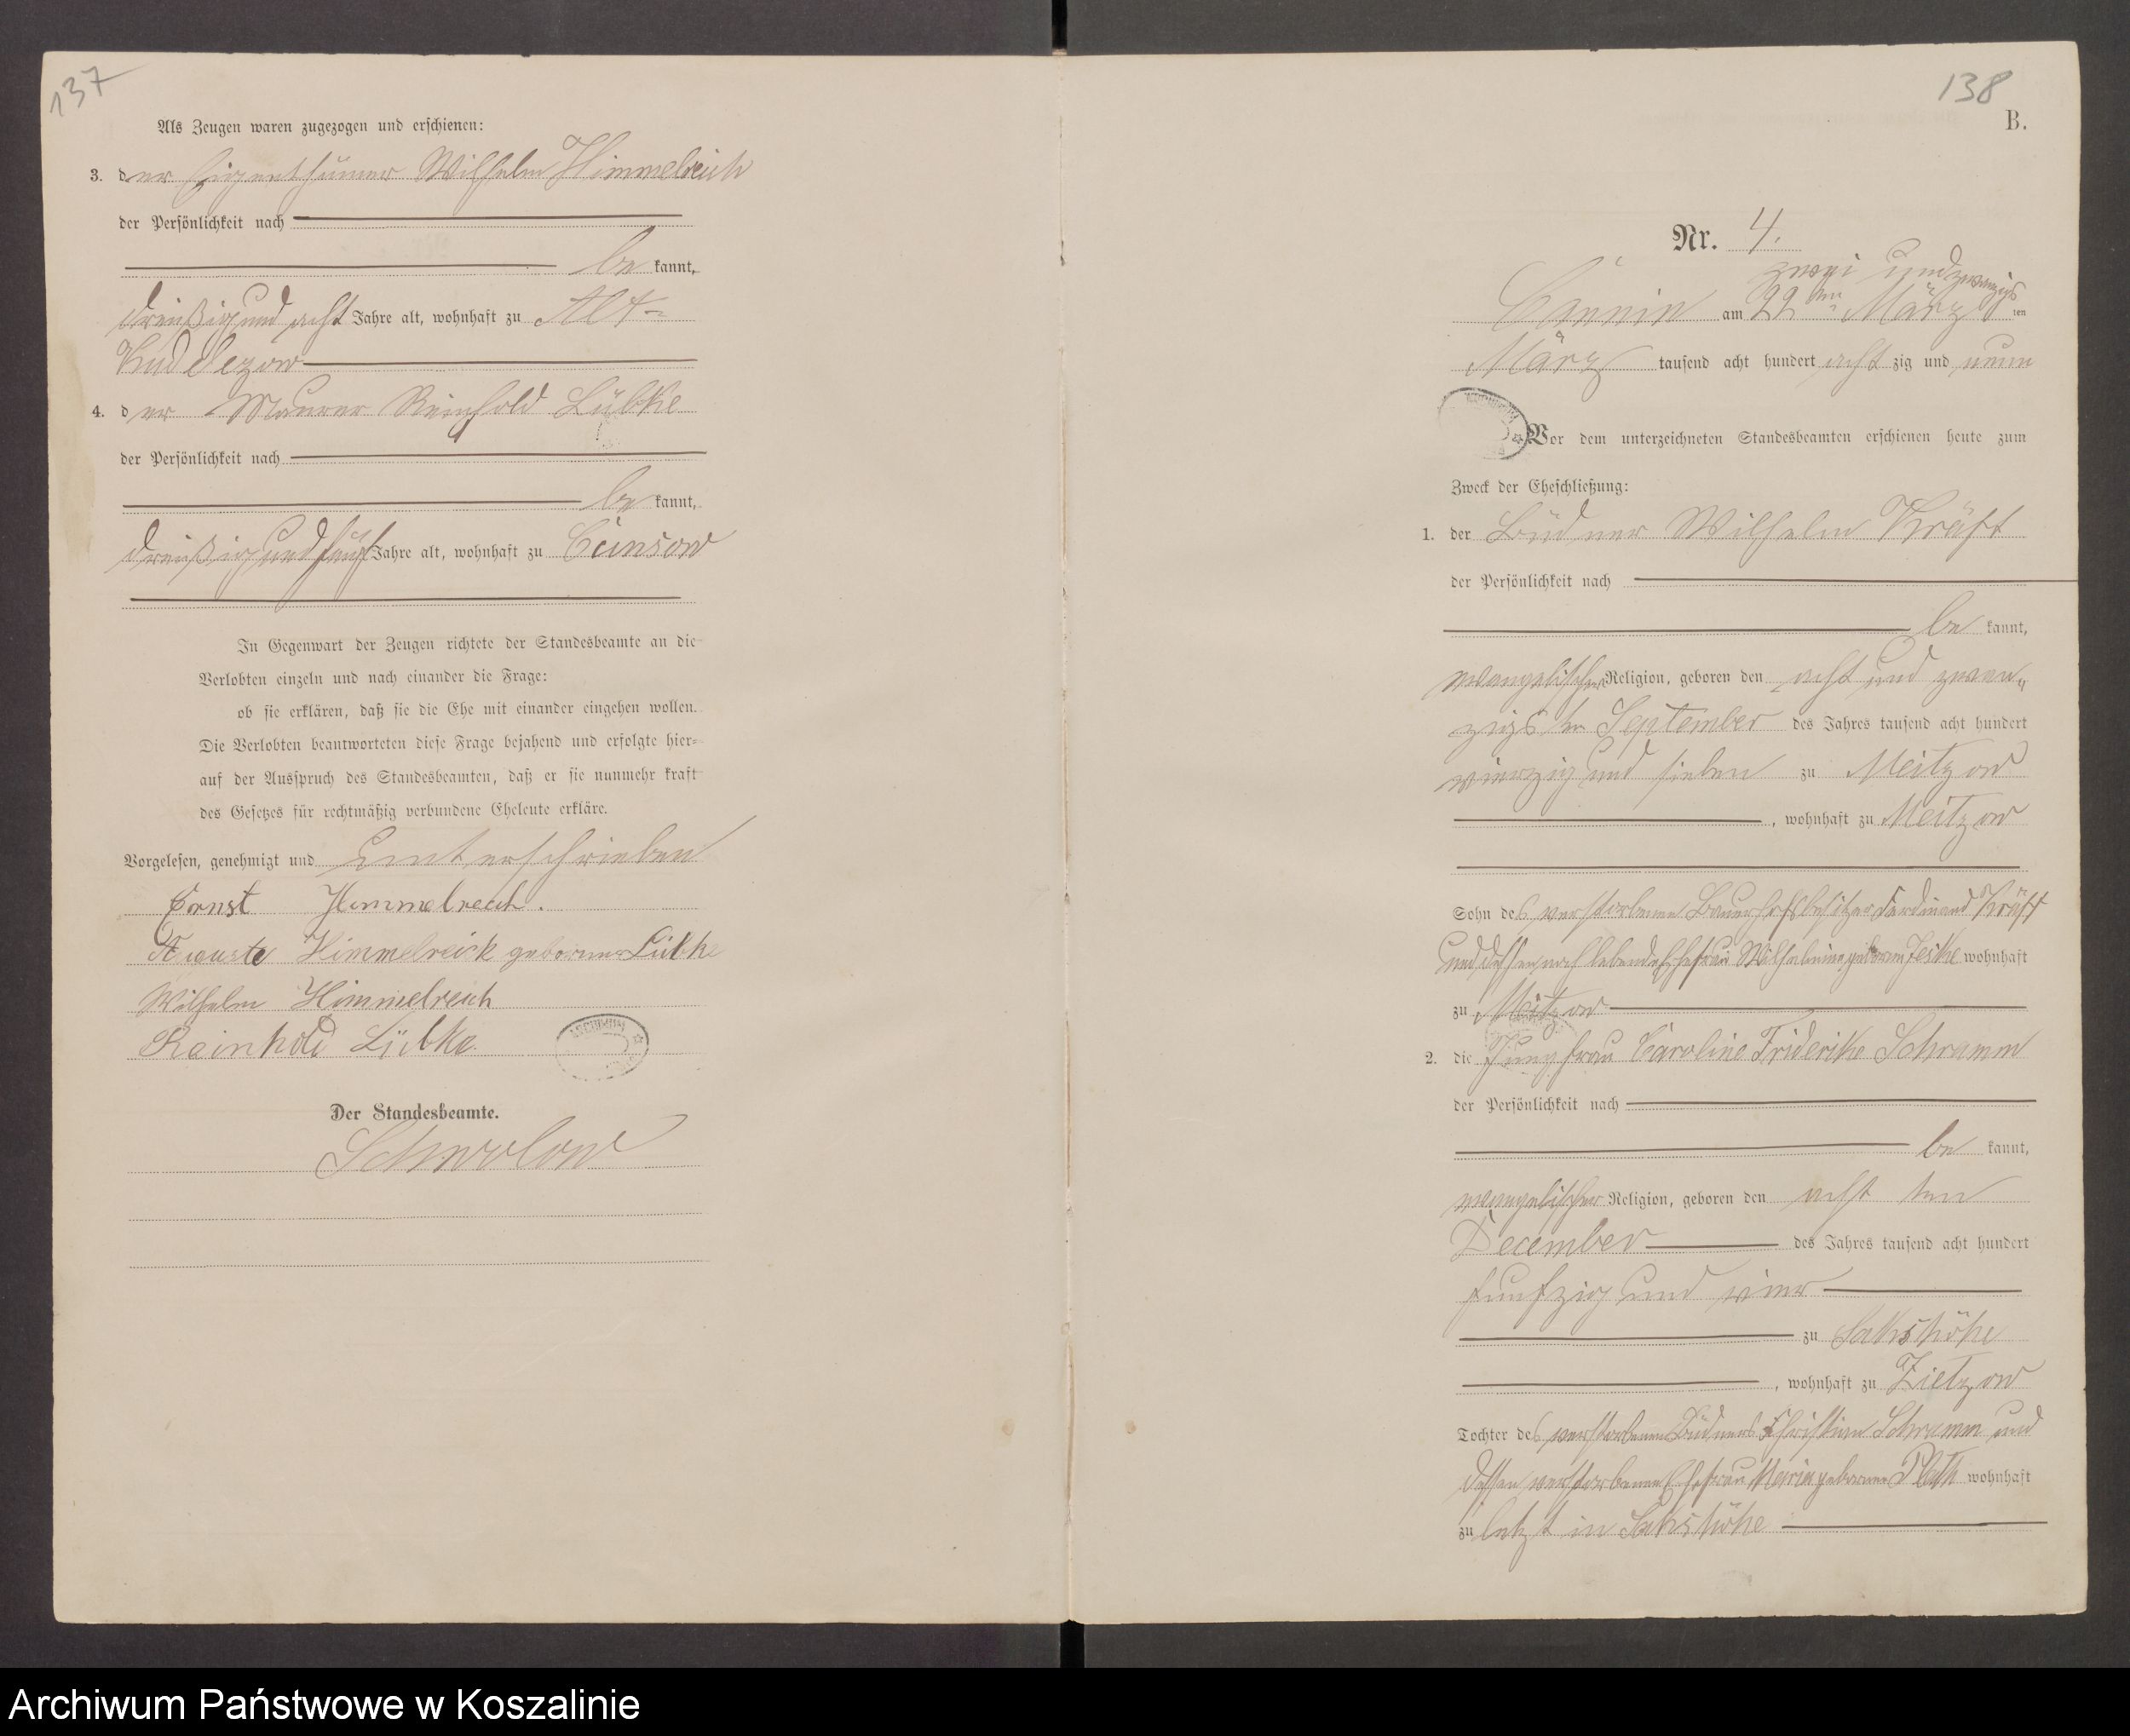 137
Als Zeugen waren zugezogen und erschienen:
3. der Eigenthümer Wilhelm Himmelreich
der Persönlichkeit nach
be kannt,
dreißig und acht Jahre alt, wohnhaft zu Alt-
Kuddezow
4. der Maurer Reinhold Lübke
der Persönlichkeit nach
be kannt,
dreißig und fünf Jahre alt, wohnhaft zu Cunsow
In Gegenwart der Zeugen richtete der Standesbeamte an die
Verlobten einzeln und nach einander die Frage:
ob sie erklären, daß sie die Ehe mit einander eingehen wollen.
Die Verlobten beantworteten diese Frage bejahend und erfolgte hier-
auf der Ausspruch des Standesbeamten, daß er sie nunmehr kraft
des Gesetzes für rechtmäßig verbundene Eheleute erkläre.
Vorgelesen, genehmigt und unterschrieben
Ernst Himmelreich.
Auguste Himmelreich geborene Lübke
Wilhelm Himmelreich
Reinhold Lübke
Der Standesbeamte.
138
B.
Nr. 4.
zwei und zwanzigs
Cunnin am 22ten März ten
März tausend acht hundert acht zig und neun
Vor dem unterzeichneten Standesbeamten erschienen heute zum
Zweck der Eheschließung:
1. der Büdner Wilhelm Kräft
der Persönlichkeit nach
be kannt,
evangelischer Religion, geboren den acht und zwan-
zigsten September des Jahres tausend acht hundert
vierzig und sieben zu Meitzow
, wohnhaft zu Meitzow
Sohn des verstorbenen Bauerhofsbesitzer Ferdinand Kräft
und dessen noch lebende Ehefrau Wilhelmine geborene Jeske wohnhaft
zu Meitzow
2. die Jungfrau Caroline Friderike Schramm
der Persönlichkeit nach
be kannt,
evangelischer Religion, geboren den acht ten
December des Jahres tausend acht hundert
funfzig und vier
zu Sakshöhe
, wohnhaft zu Zietzow
Tochter des verstorbenen Büdners Christian Schramm und
dessen verstorbenen Ehefrau Marie geborene Plath wohnhaft
zu letzt in Sakshöhe
Archiwum Państwowe w Koszalinie